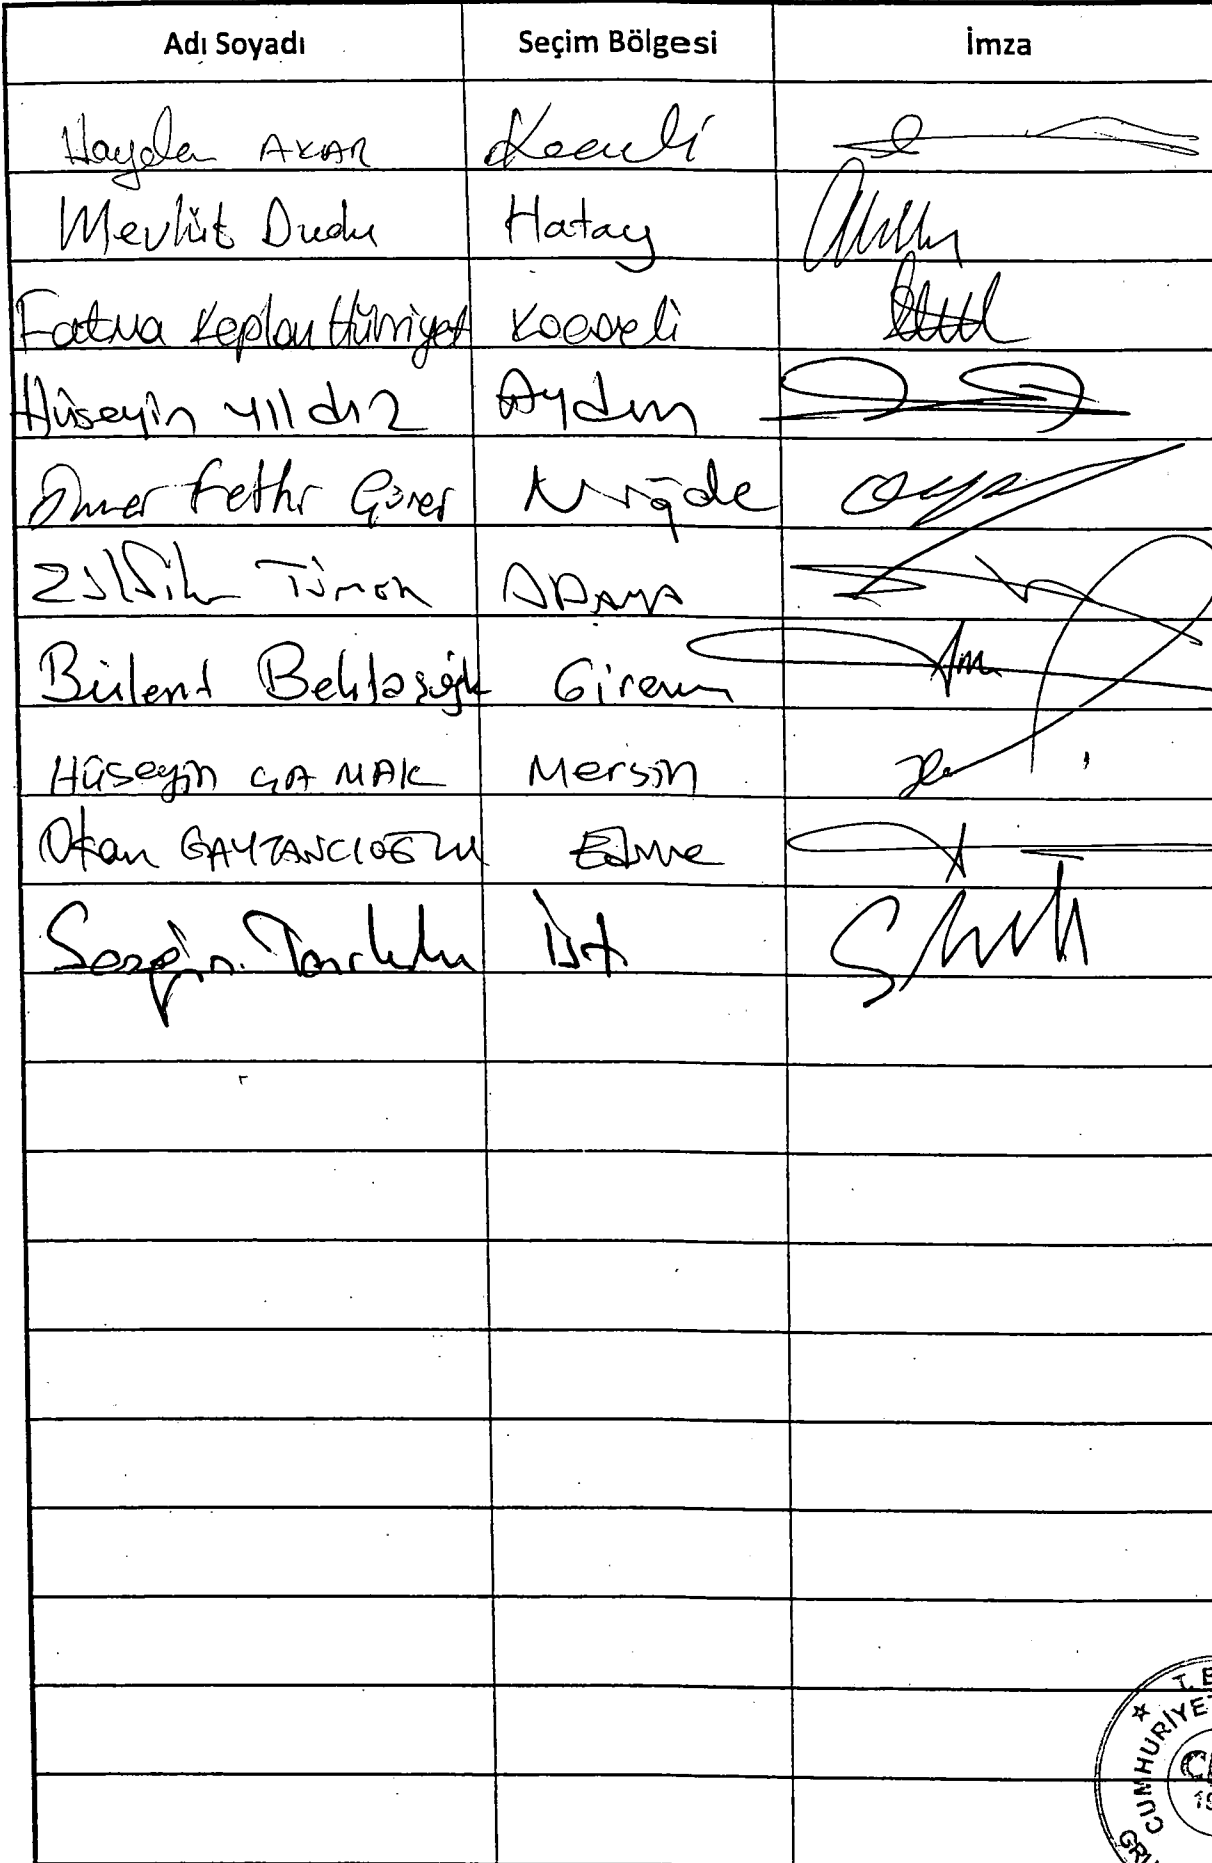 Adı Soyadı Seçim Bölgesi İmza
Haydar AKAR Kocaeli
Mevlüt Dudu Hatay
Fatma Kaplan Hürriyet Kocaeli
Hüseyin Yıldız Aydın
Ömer Fethi Gürer Niğde
Zülfikar Tümer ADANA
Bülent Bektaşoğlu Giresun
Hüseyin ÇAMAK Mersin
Okan GAYTANCIOĞLU Edirne
Sezgin Tanrıkulu İst
T. B
CUMHURİYET
CH
19
GRU